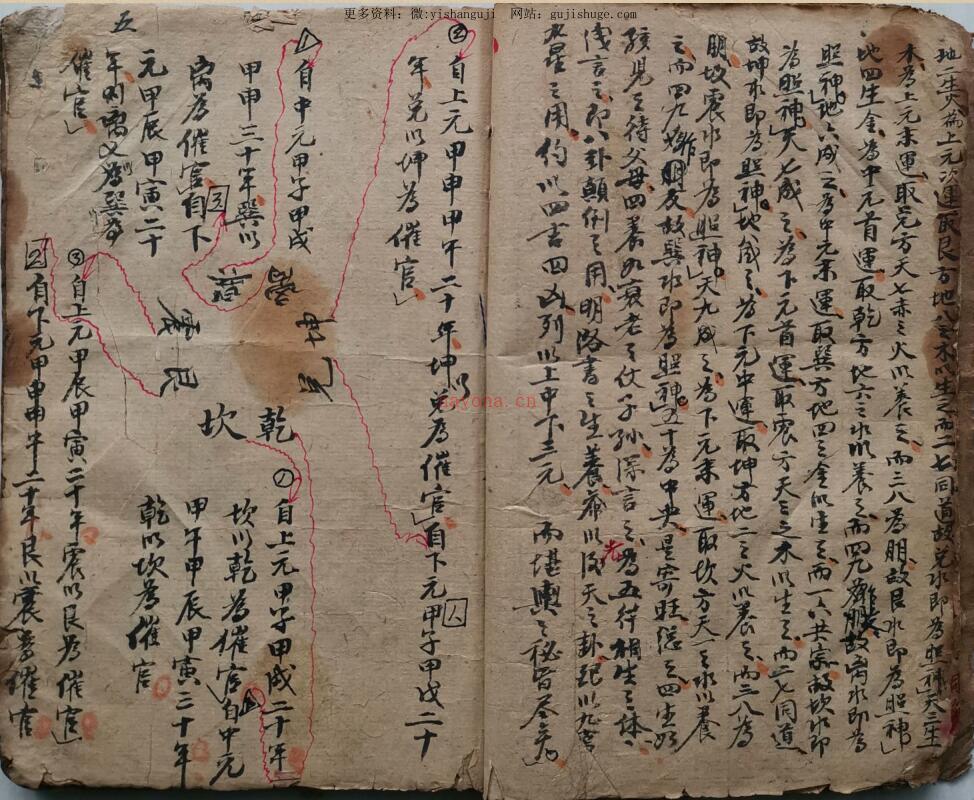 更多资料：微:yishanguji 网站：gujishuge.com
地二生火為上元次運取艮方地八之木以生之而二七同道故兌水即為照神天三生
木為上元末運取兌方天七赤之火以養之而三八為朋故艮水即為照神
地四生金為中元首運取乾方地六之水以養之而四九為朋故离水即為
照神地六成之為中元末運取巽方地四之金以生之而一六共宗故坎水即
為照神天七成之為下元首運取震方天三之木以生之而二七同道
故坤水即為照神地八成之為下元中運取坤方地二之火以養之而三八為
朋故震水即為照神天九成之為下元末運取坎方天一之水以養
之而四九作朋友故巽水即為照神五十為中央是寄旺總之四生如
孩兒之待父母四養如衰老之仗子孫深言之為五行相生之体
淺言之即八卦顛倒之用明洛書之生養希以後天之卦配以九宮
九星之用約以四吉四凶列以上中下三元而堪輿之秘皆尽矣
②自上元甲申甲午二十年坤以兌為催官自下元甲子甲戌二十
年兌以坤為催官
自中元甲子甲戌
甲申三十年巽以
离為催官自下
元甲辰甲寅二十
年离以巽為
催官
五
巽
离
坤
兌
震
艮
坎
乾
①自上元甲子甲戌二十年
坎以乾為催官自中元
甲午甲辰甲寅三十年
乾以坎為催官
③自上元甲辰甲寅二十年震以艮為催官
自下元甲申甲午二十年艮以震為催官
nayona.cn